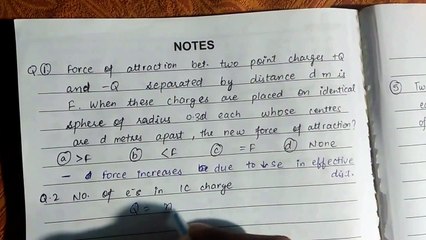 NOTES
Q.① Force of attraction bet. two point charges +Q
and -Q separated by distance d m is
F. When these charges are placed on identical
sphere of radius 0.3d each whose centres
are d metres apart, the new force of attraction?
ⓐ >F ⓑ <F ⓒ =F ⓓ None
- force increases due to ↓se in effective
dist.
Q.2 No. of e⁻s in 1C charge
Q = n